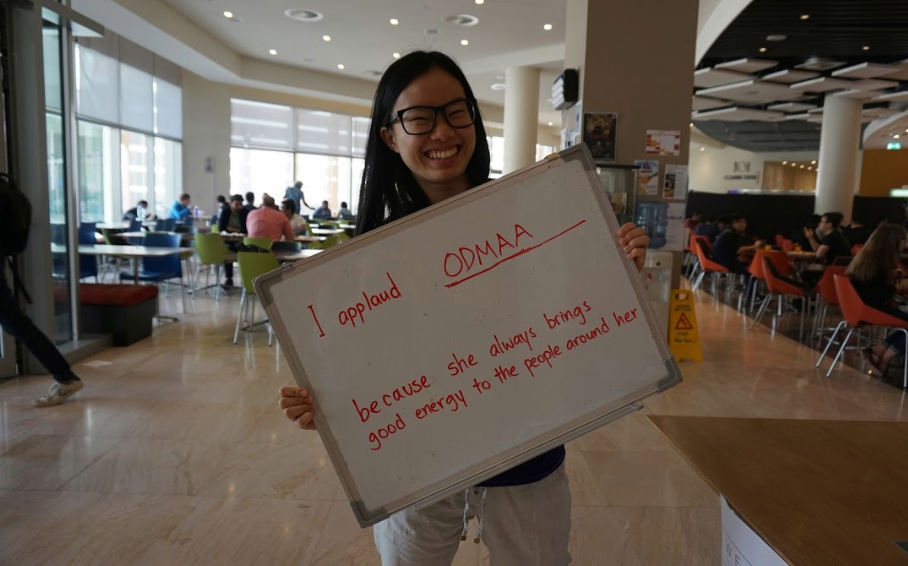 I applaud ODMAA
because she always brings
good energy to the people around her